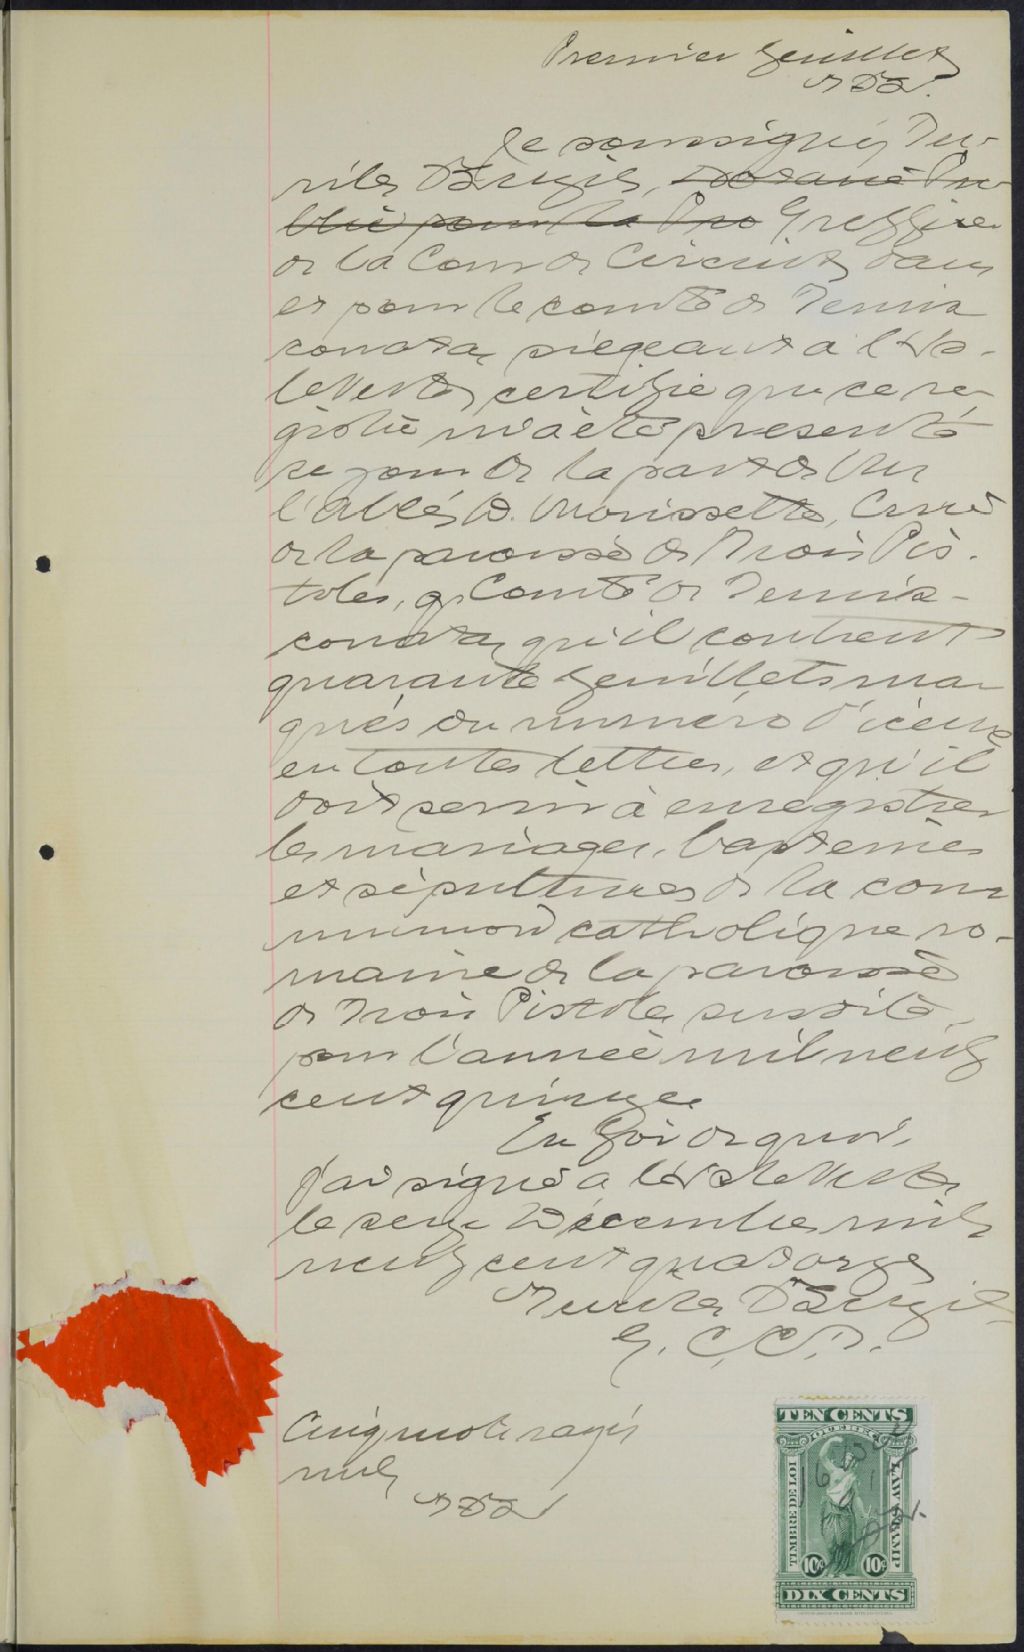 Premier feuillet
Je soussigné,
Greffier
de la Cour de Circuit, dans
et pour le comté de Témis
conata, siégeant à l'Is-
le Verte, certifie que ce re
gistre m'a été présenté
ce jour de la part de Mr
l'abbé D. Morissette, Curé
de la paroisse de Trois Pis-
toles, Comté de Témis-
conata, qu'il contient
quarante feuillets mar
qués du numéro d'iceux
en toutes lettres, et qu'il
doit servir à enregistrer
les mariages, baptêmes
et sépultures de la com
munion catholique ro-
maine de la paroisse
de Trois Pistoles susdite,
pour l'année mil neuf
cent quinze
En foi de quoi,
j'ai signé à l'Isle Verte
le seize Décembre mil
neuf cent quatorze
G. C. C. T.
Cinq mots rayés
nuls
TEN CENTS
QUEBEC
TIMBRE DE LOI
LAW STAMP
10c 10c
DIX CENTS